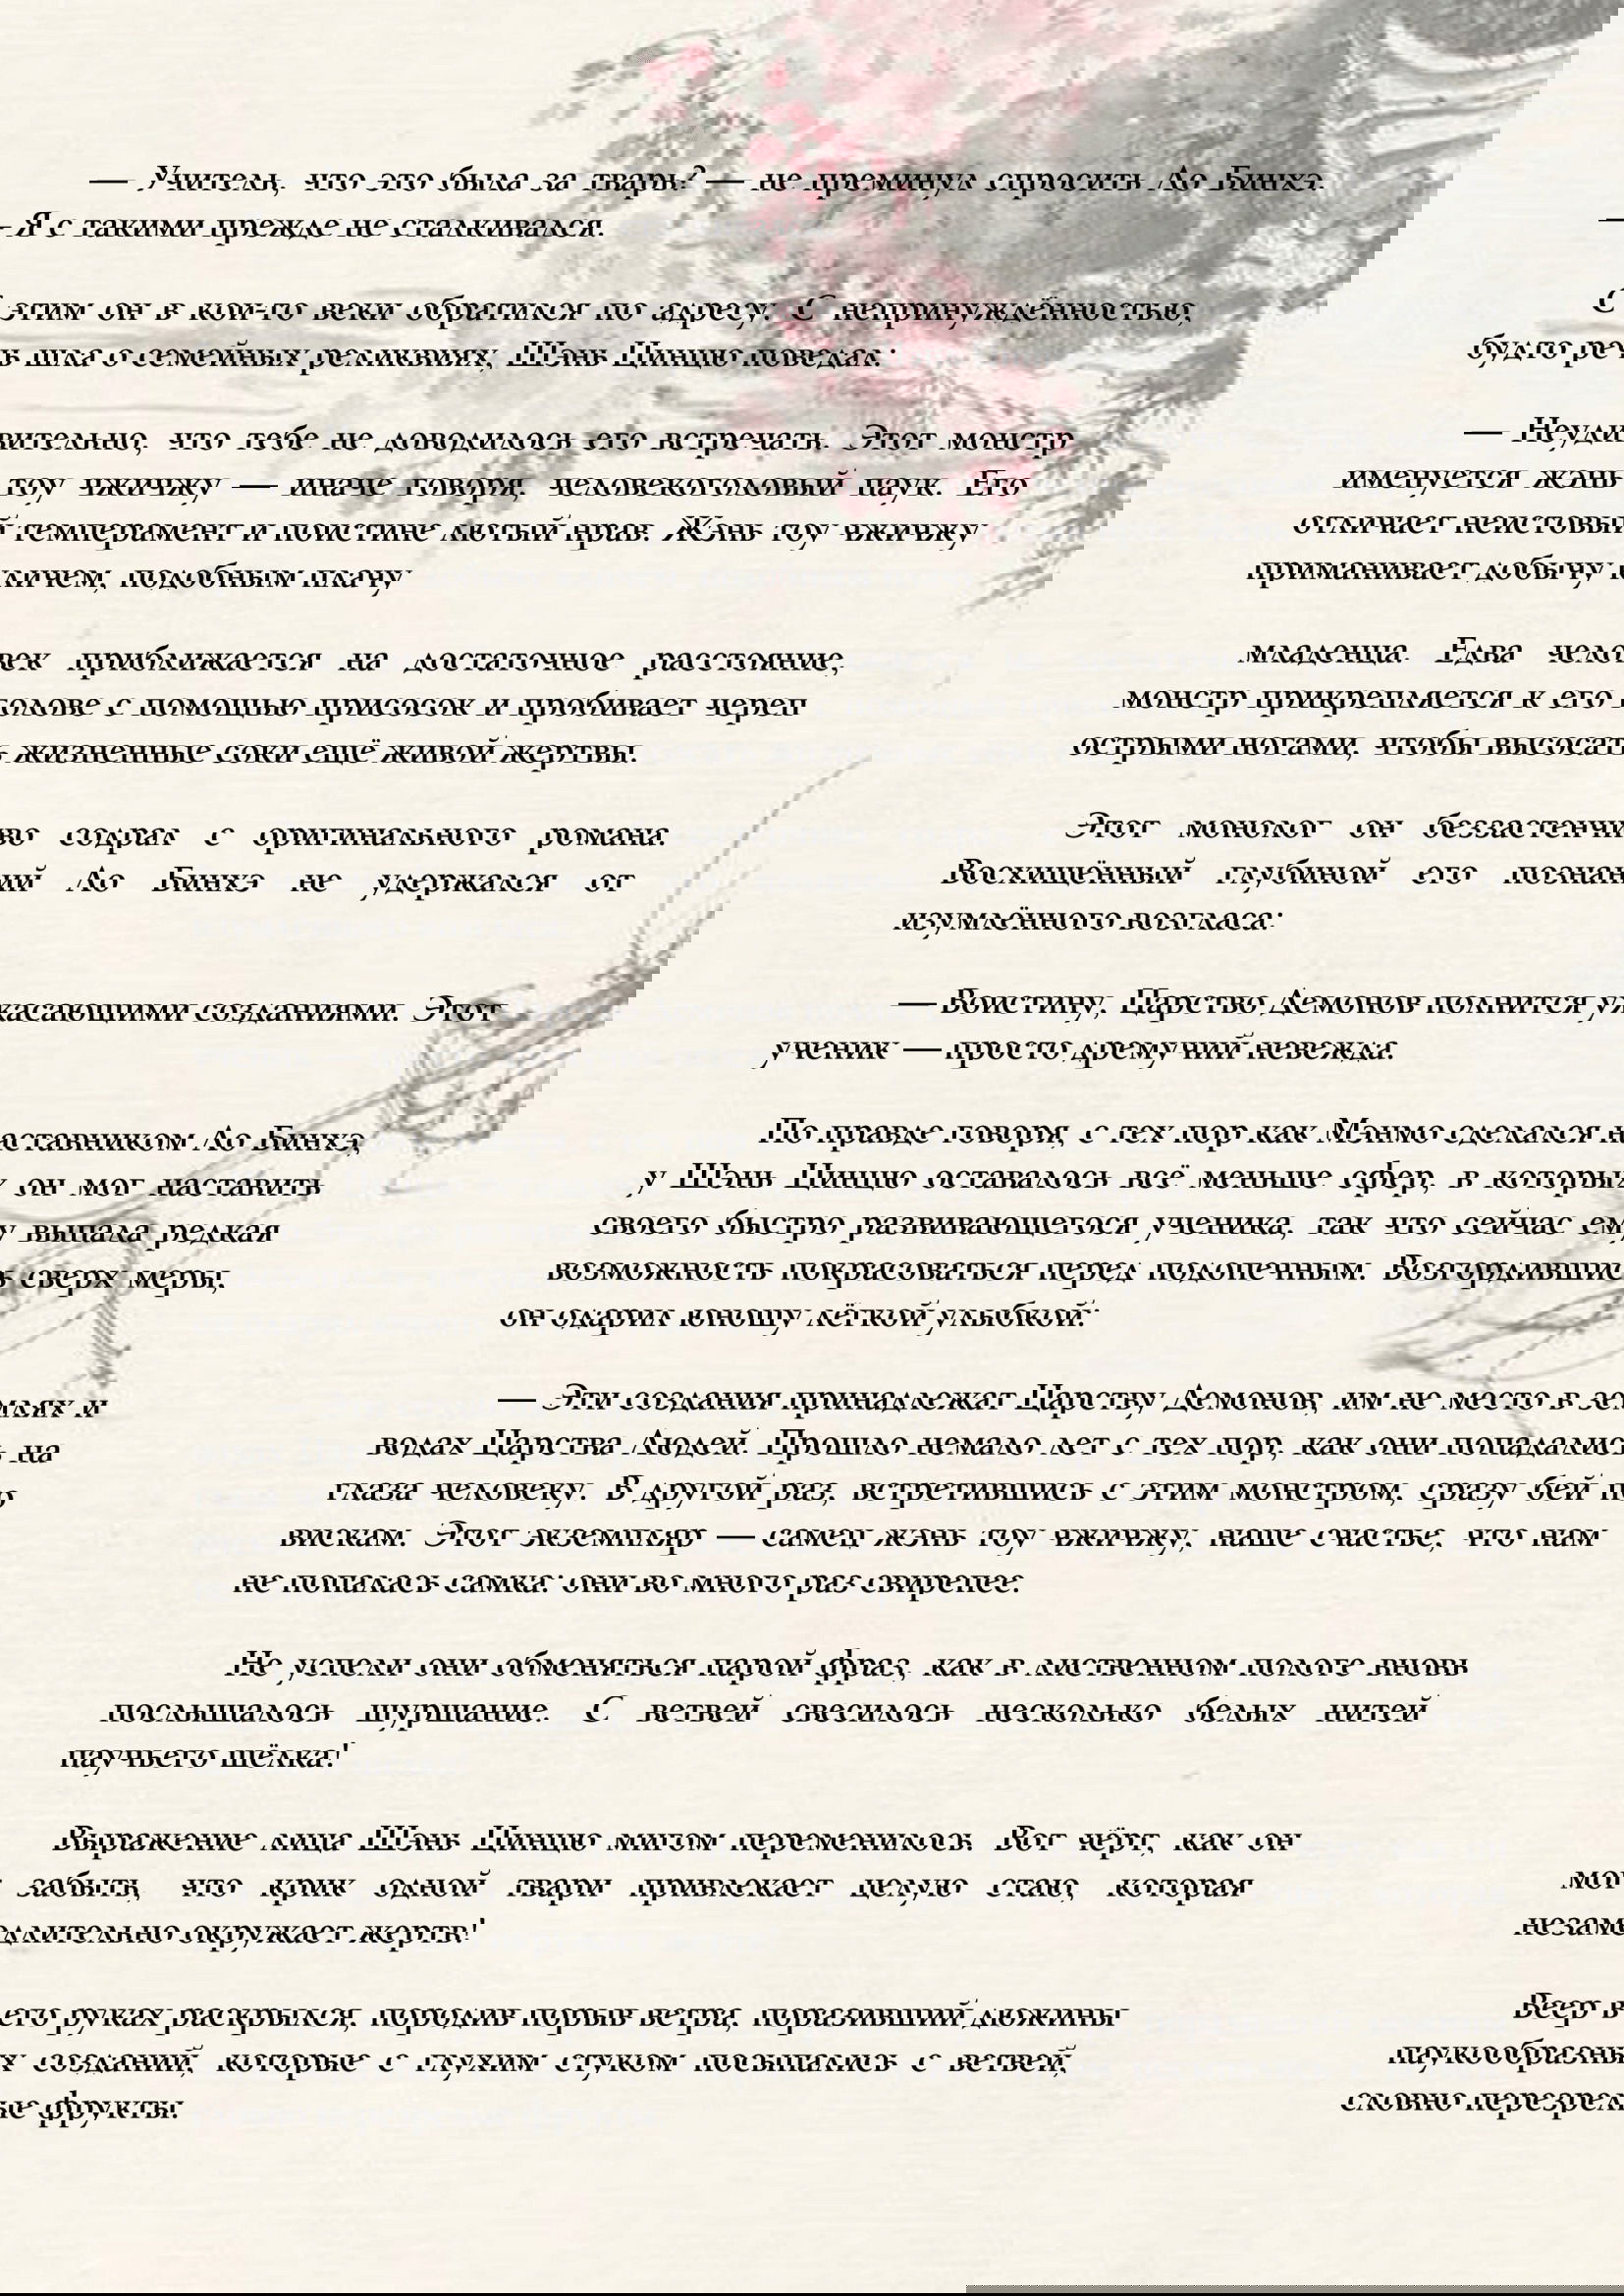 — Учитель, что это была за тварь? — не преминул спросить Ло Бинхэ.
— Я с такими прежде не сталкивался.
С этим он в кои-то веки обратился по адресу. С непринуждённостью,
будто речь шла о семейных реликвиях, Шэнь Цинцю поведал:
— Неудивительно, что тебе не доводилось его встречать. Этот монстр
именуется жэнь тоу чжичжу — иначе говоря, человекоголовый паук. Его
отличает неистовый темперамент и поистине лютый нрав. Жэнь тоу чжичжу
приманивает добычу кличем, подобным плачу
младенца. Едва человек приближается на достаточное расстояние,
монстр прикрепляется к его голове с помощью присосок и пробивает череп
острыми ногами, чтобы высосать жизненные соки ещё живой жертвы.
Этот монолог он беззастенчиво содрал с оригинального романа.
Восхищённый глубиной его познаний Ло Бинхэ не удержался от
изумлённого возгласа:
— Воистину, Царство Демонов полнится ужасающими созданиями. Этот
ученик — просто дремучий невежда.
По правде говоря, с тех пор как Мэнмо сделался наставником Ло Бинхэ,
у Шэнь Цинцю оставалось всё меньше сфер, в которых он мог наставить
своего быстро развивающегося ученика, так что сейчас ему выпала редкая
возможность покрасоваться перед подопечным. Возгордившись сверх меры,
он одарил юношу лёгкой улыбкой:
— Эти создания принадлежат Царству Демонов, им не место в землях и
водах Царства Людей. Прошло немало лет с тех пор, как они попадались на
глаза человеку. В другой раз, встретившись с этим монстром, сразу бей по
вискам. Этот экземпляр — самец жэнь тоу чжичжу, наше счастье, что нам
не попалась самка: они во много раз свирепее.
Не успели они обменяться парой фраз, как в лиственном пологе вновь
послышалось шуршание. С ветвей свесилось несколько белых нитей
паучьего шёлка!
Выражение лица Шэнь Цинцю мигом переменилось. Вот чёрт, как он
мог забыть, что крик одной твари привлекает целую стаю, которая
незамедлительно окружает жертв!
Веер в его руках раскрылся, породив порыв ветра, поразивший дюжины
паукообразных созданий, которые с глухим стуком посыпались с ветвей,
словно перезрелые фрукты.